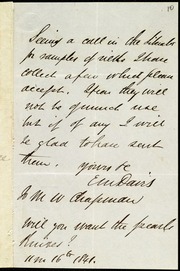 Seeing a call in the Liberator
for samples of        I have
collect a few which please
accept. I fear they will
not be of much use
but if of any I will
be glad to have sent
them.
yours &c
E M Davis
To M. W Chapman
Will you want the pearl
knives?
11 m 16th 1841.